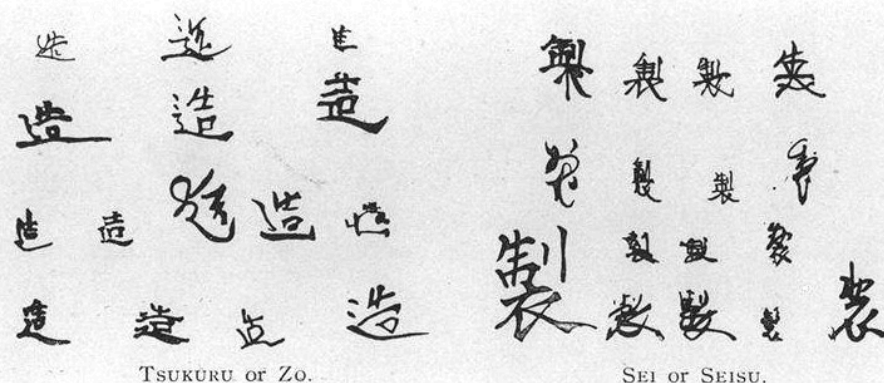 造 造 造
造 造 造
造 造 造 造 造
造 造 造 造
TSUKURU or ZO.
製 製 製 製
製 製 製 製
製 製 製 製
製 製 製 製
SEI or SEISU.